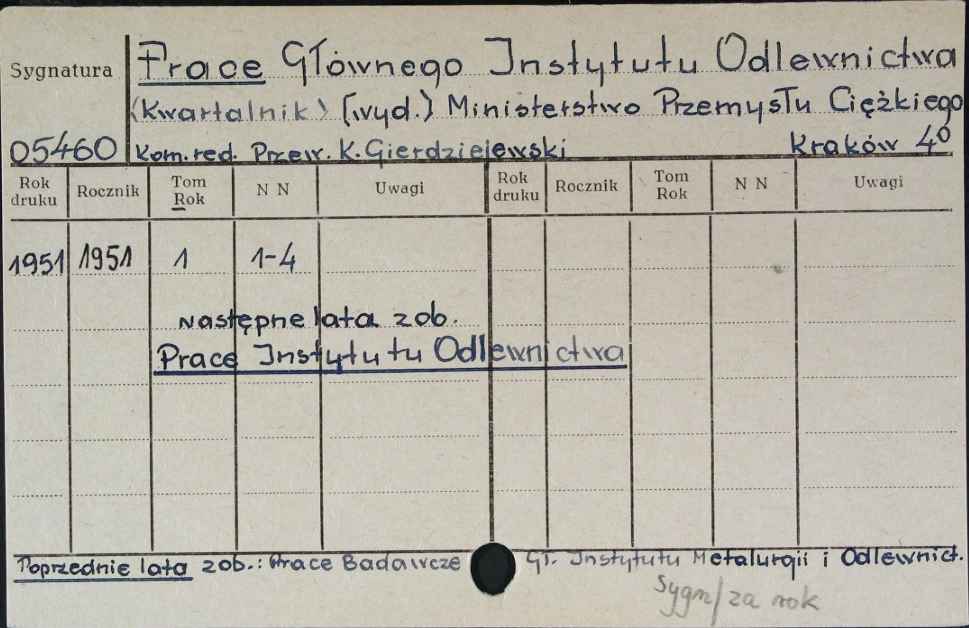 Sygnatura Prace Głównego Instytutu Odlewnictwa
(Kwartalnik) [wyd.] Ministerstwo Przemysłu Ciężkiego
05460 Kom. red. Przew. K. Gierdziejewski Kraków 4°
Rok druku Rocznik Tom Rok N N Uwagi Rok druku Rocznik Tom Rok N N Uwagi
1951 1951 1 1-4
Następne lata zob.
Prace Instytutu Odlewnictwa
Poprzednie lata zob.: Prace Badawcze Gł. Instytutu Metalurgii i Odlewnict.
Sygn/za rok